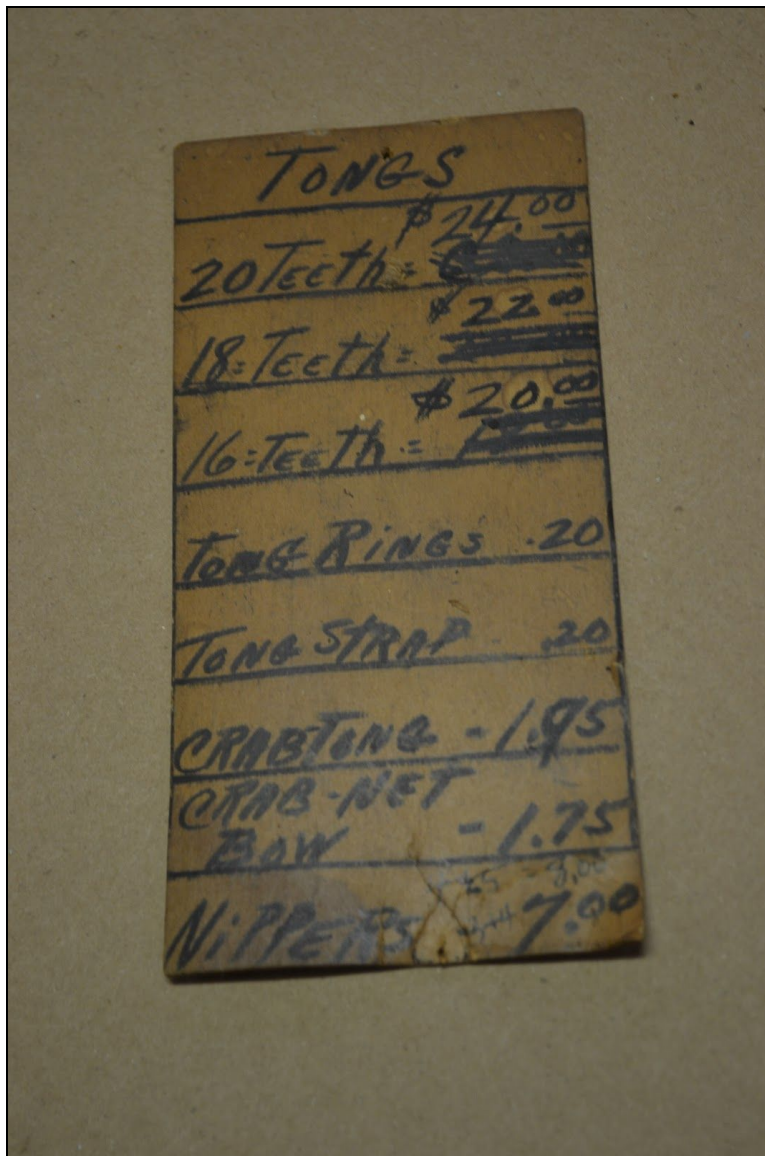 TONGS
$24.00
20 TEETH =
$22.00
18 = TEETH =
$20.00
16 = TEETH =
TONG RINGS .20
TONG STRAP .20
CRABTONG - 1.95
CRAB-NET
BOW - 1.75
8.00
NIPPERS 7.00